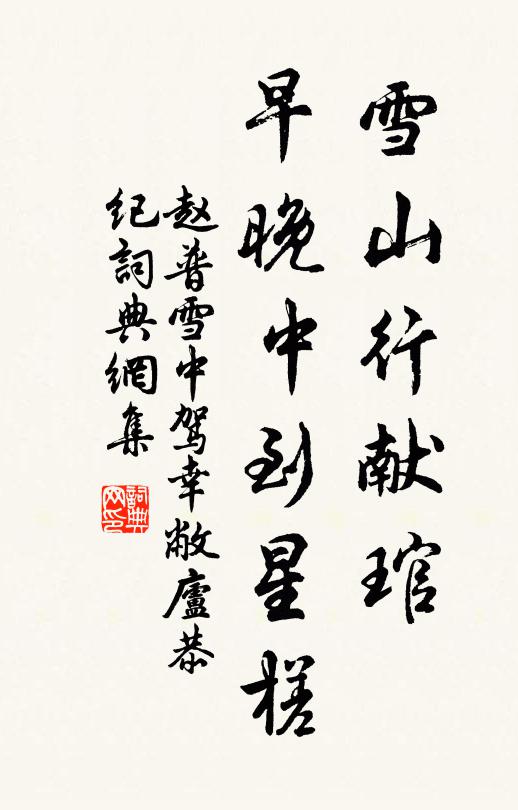 雪山行献琯
早晚中到星槎
赵普雪中驾幸敝廬恭
纪詞典網集
詞典网印